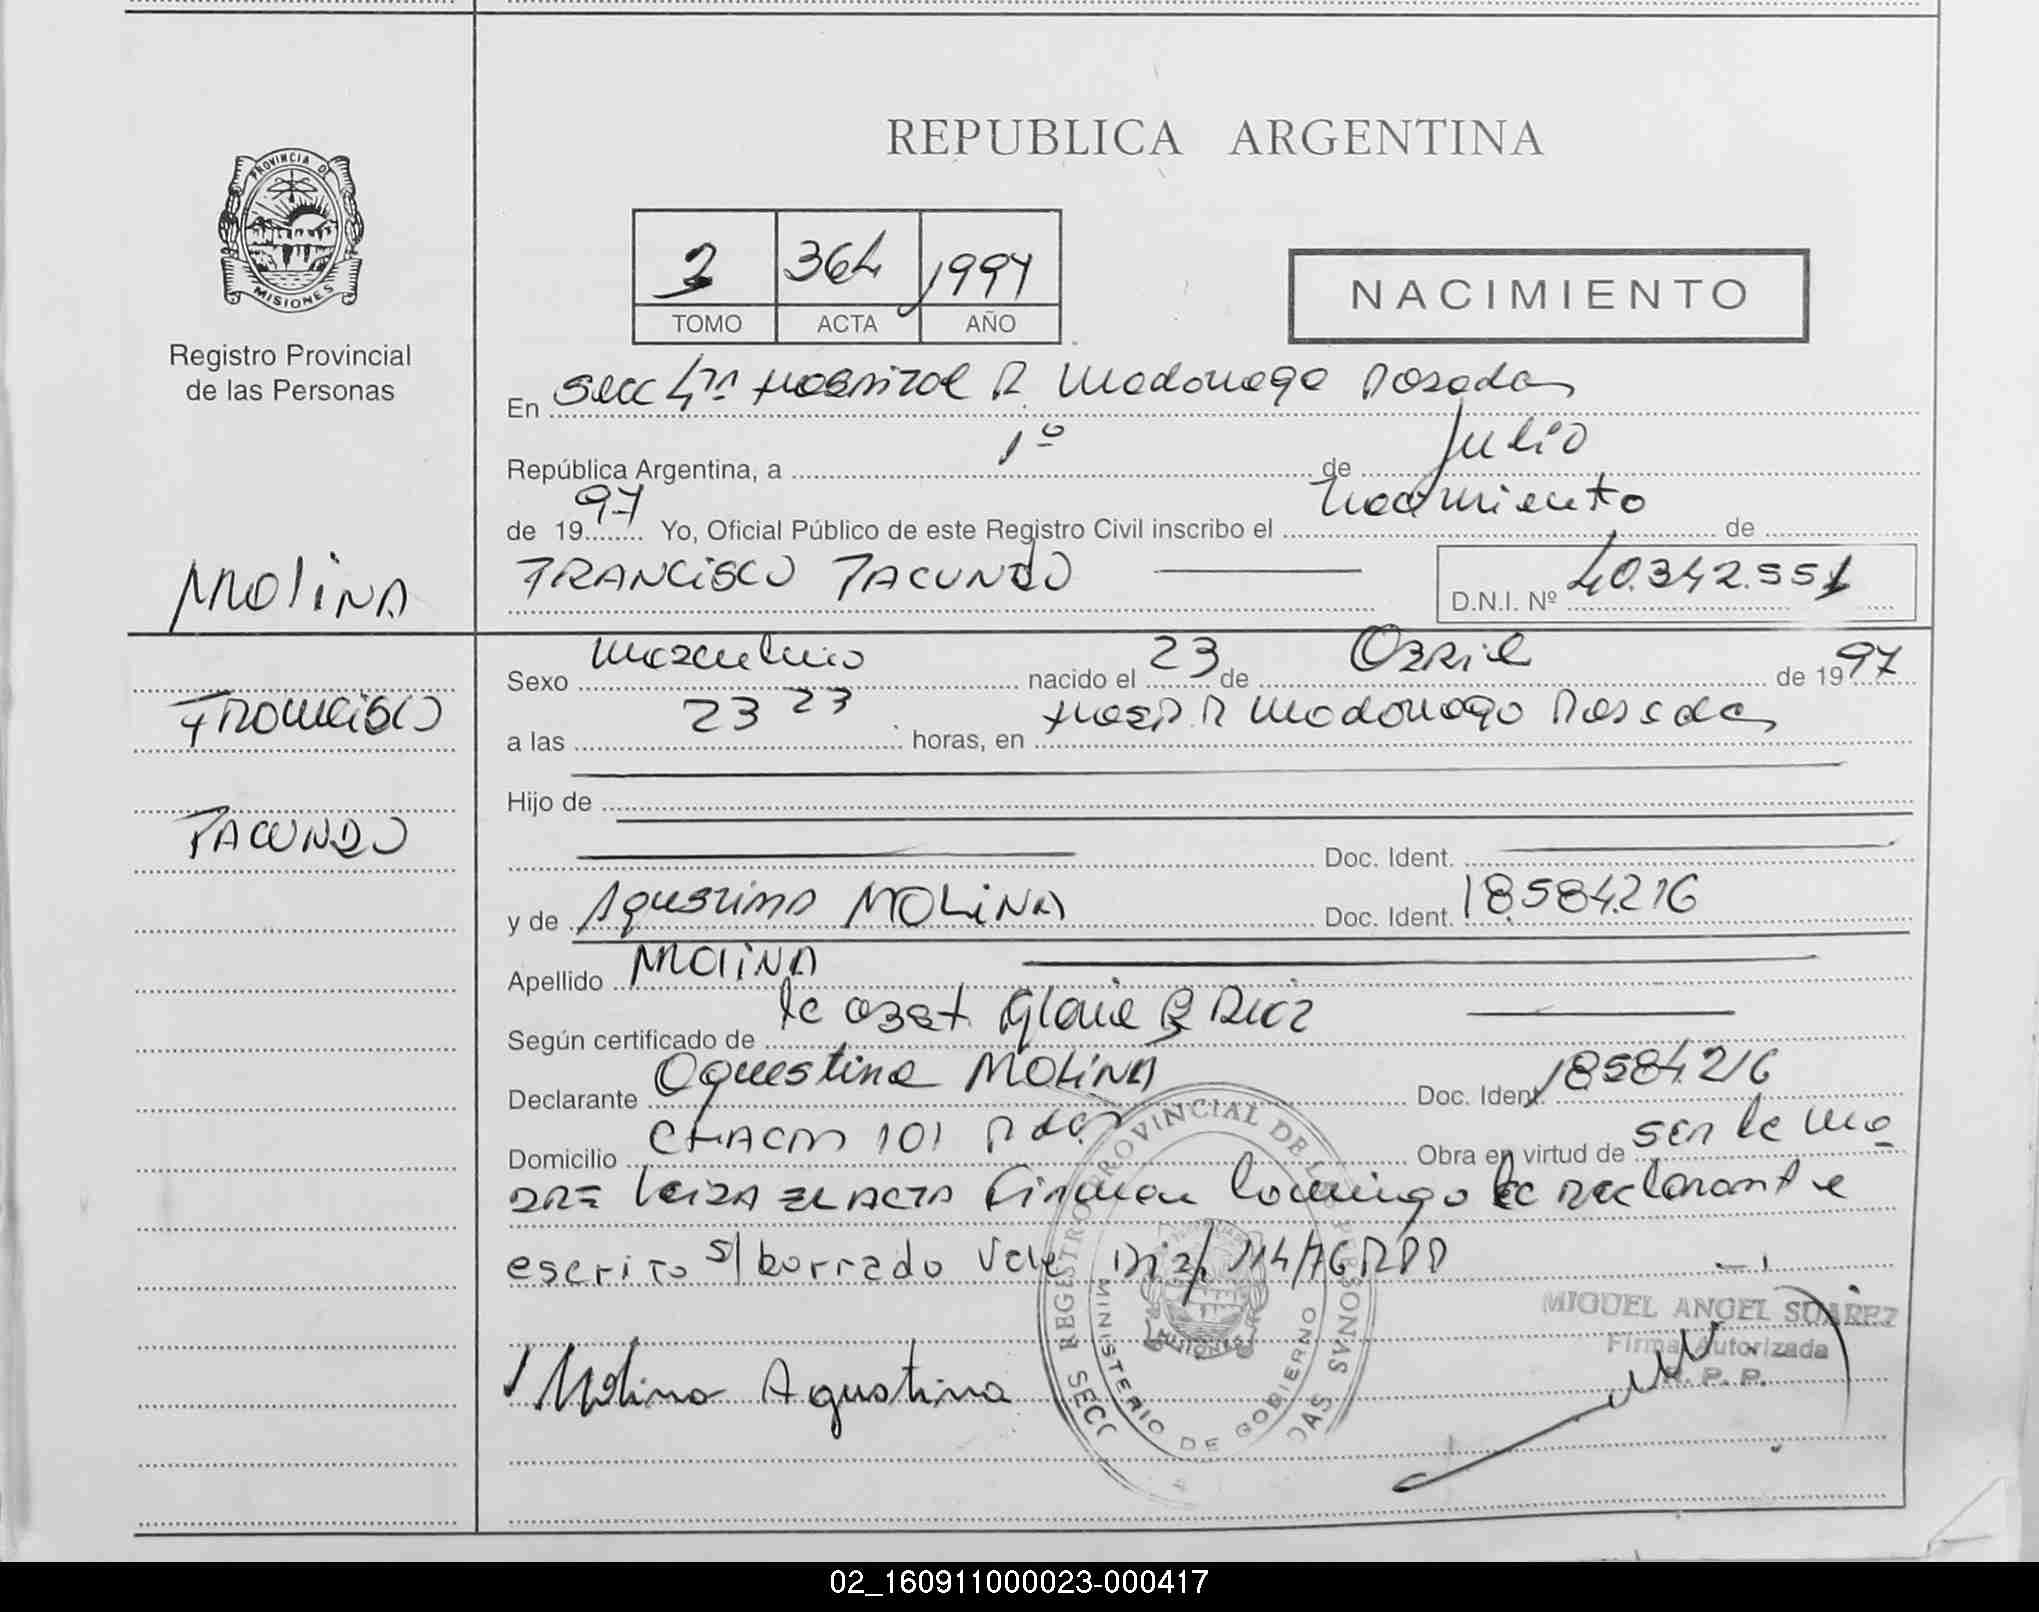 REPUBLICA ARGENTINA
PROVINCIA DE
MISIONES
Registro Provincial
de las Personas
2 364 1997
TOMO ACTA AÑO
NACIMIENTO
En Secc 4ta Hospital R. Madariaga Posadas
República Argentina, a 1º de Julio
de 1997 Yo, Oficial Público de este Registro Civil inscribo el Nacimiento de
FRANCISCO FACUNDO D.N.I. Nº 40.342.551
MOLINA
Sexo Masculino nacido el 23 de Abril de 1997
FRANCISCO
a las 23 23 horas, en Hosp. R Madariaga Posadas
Hijo de
FACUNDO
Doc. Ident.
y de Agustina MOLINA Doc. Ident. 18.584.216
Apellido MOLINA
Según certificado de la obst. Gloria
Declarante Agustina MOLINA Doc. Ident. 18.584.216
Domicilio CHACRA 101 Pdas Obra en virtud de ser la ma
dre leida el acta firman conmigo la declarante
escrito s/ borrado Vale 114/76 RPP
REGISTRO PROVINCIAL DE LAS PERSONAS
MINISTERIO DE GOBIERNO
MISIONES
SECC
MIGUEL ANGEL SUAREZ
Firma Autorizada
R. P. P.
Molina Agustina
02_160911000023-000417